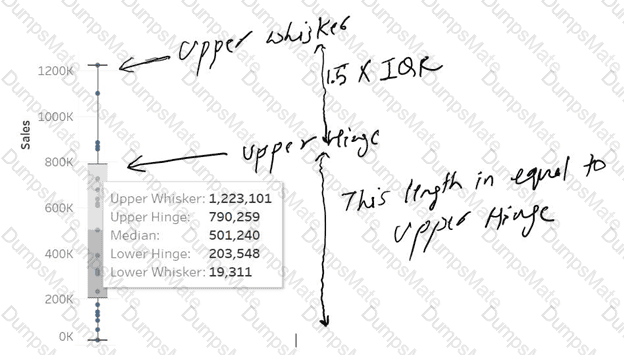 Upper Whisker
1200K
1.5 X IQR
1000K
Sales
Upper Hinge
800K
Upper Whisker: 1,223,101
Upper Hinge: 790,259
Median: 501,240
Lower Hinge: 203,548
Lower Whisker: 19,311
This length in equal to
Upper Hinge
600K
400K
200K
0K
DumpsMate